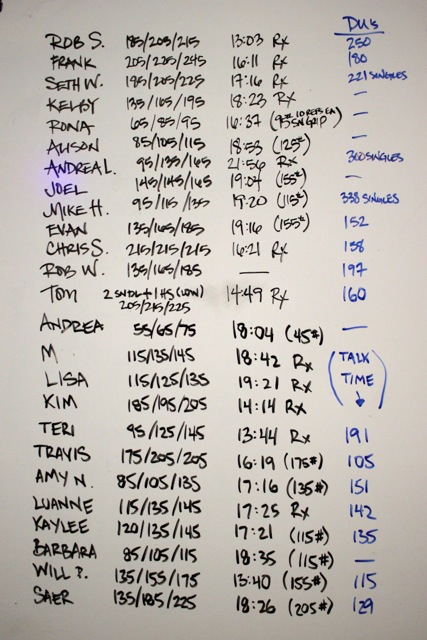 DU's
ROB S. 185/205/215 13:03 Rx 250
FRANK 205/225/245 16:11 Rx 180
SETH W. 195/205/225 17:16 Rx 221 SINGLES
KELBY 135/165/195 18:23 Rx —
RONA 65/85/95 16:37 —
ALISON 85/105/115 18:53 (125#) —
ANDREA L. 95/135/165 21:56 Rx 300 SINGLES
JOEL 145/145/165 19:04 (155#) —
MIKE H. 95/115/135 19:20 (115#) 338 SINGLES
EVAN 135/165/185 19:16 (155#) 152
CHRIS S. 215/215/215 16:21 Rx 138
ROB W. 135/165/185 — 197
TOM 14:49 Rx 160
205/215/225
ANDREA 55/65/75 18:04 (45#) —
M 115/135/145 18:42 Rx (TALK
LISA 115/125/135 19:21 Rx TIME
KIM 185/195/205 14:14 Rx ↓)
TERI 95/125/145 13:44 Rx 191
TRAVIS 175/205/205 16:19 (175#) 105
AMY N. 85/105/135 17:16 (135#) 151
LUANNE 115/135/145 17:25 Rx 142
KAYLEE 120/135/145 17:21 (115#) 135
BARBARA 85/105/115 18:35 (115#) —
WILL P. 135/155/175 13:40 (155#) 115
SAER 135/185/225 18:26 (205#) 129